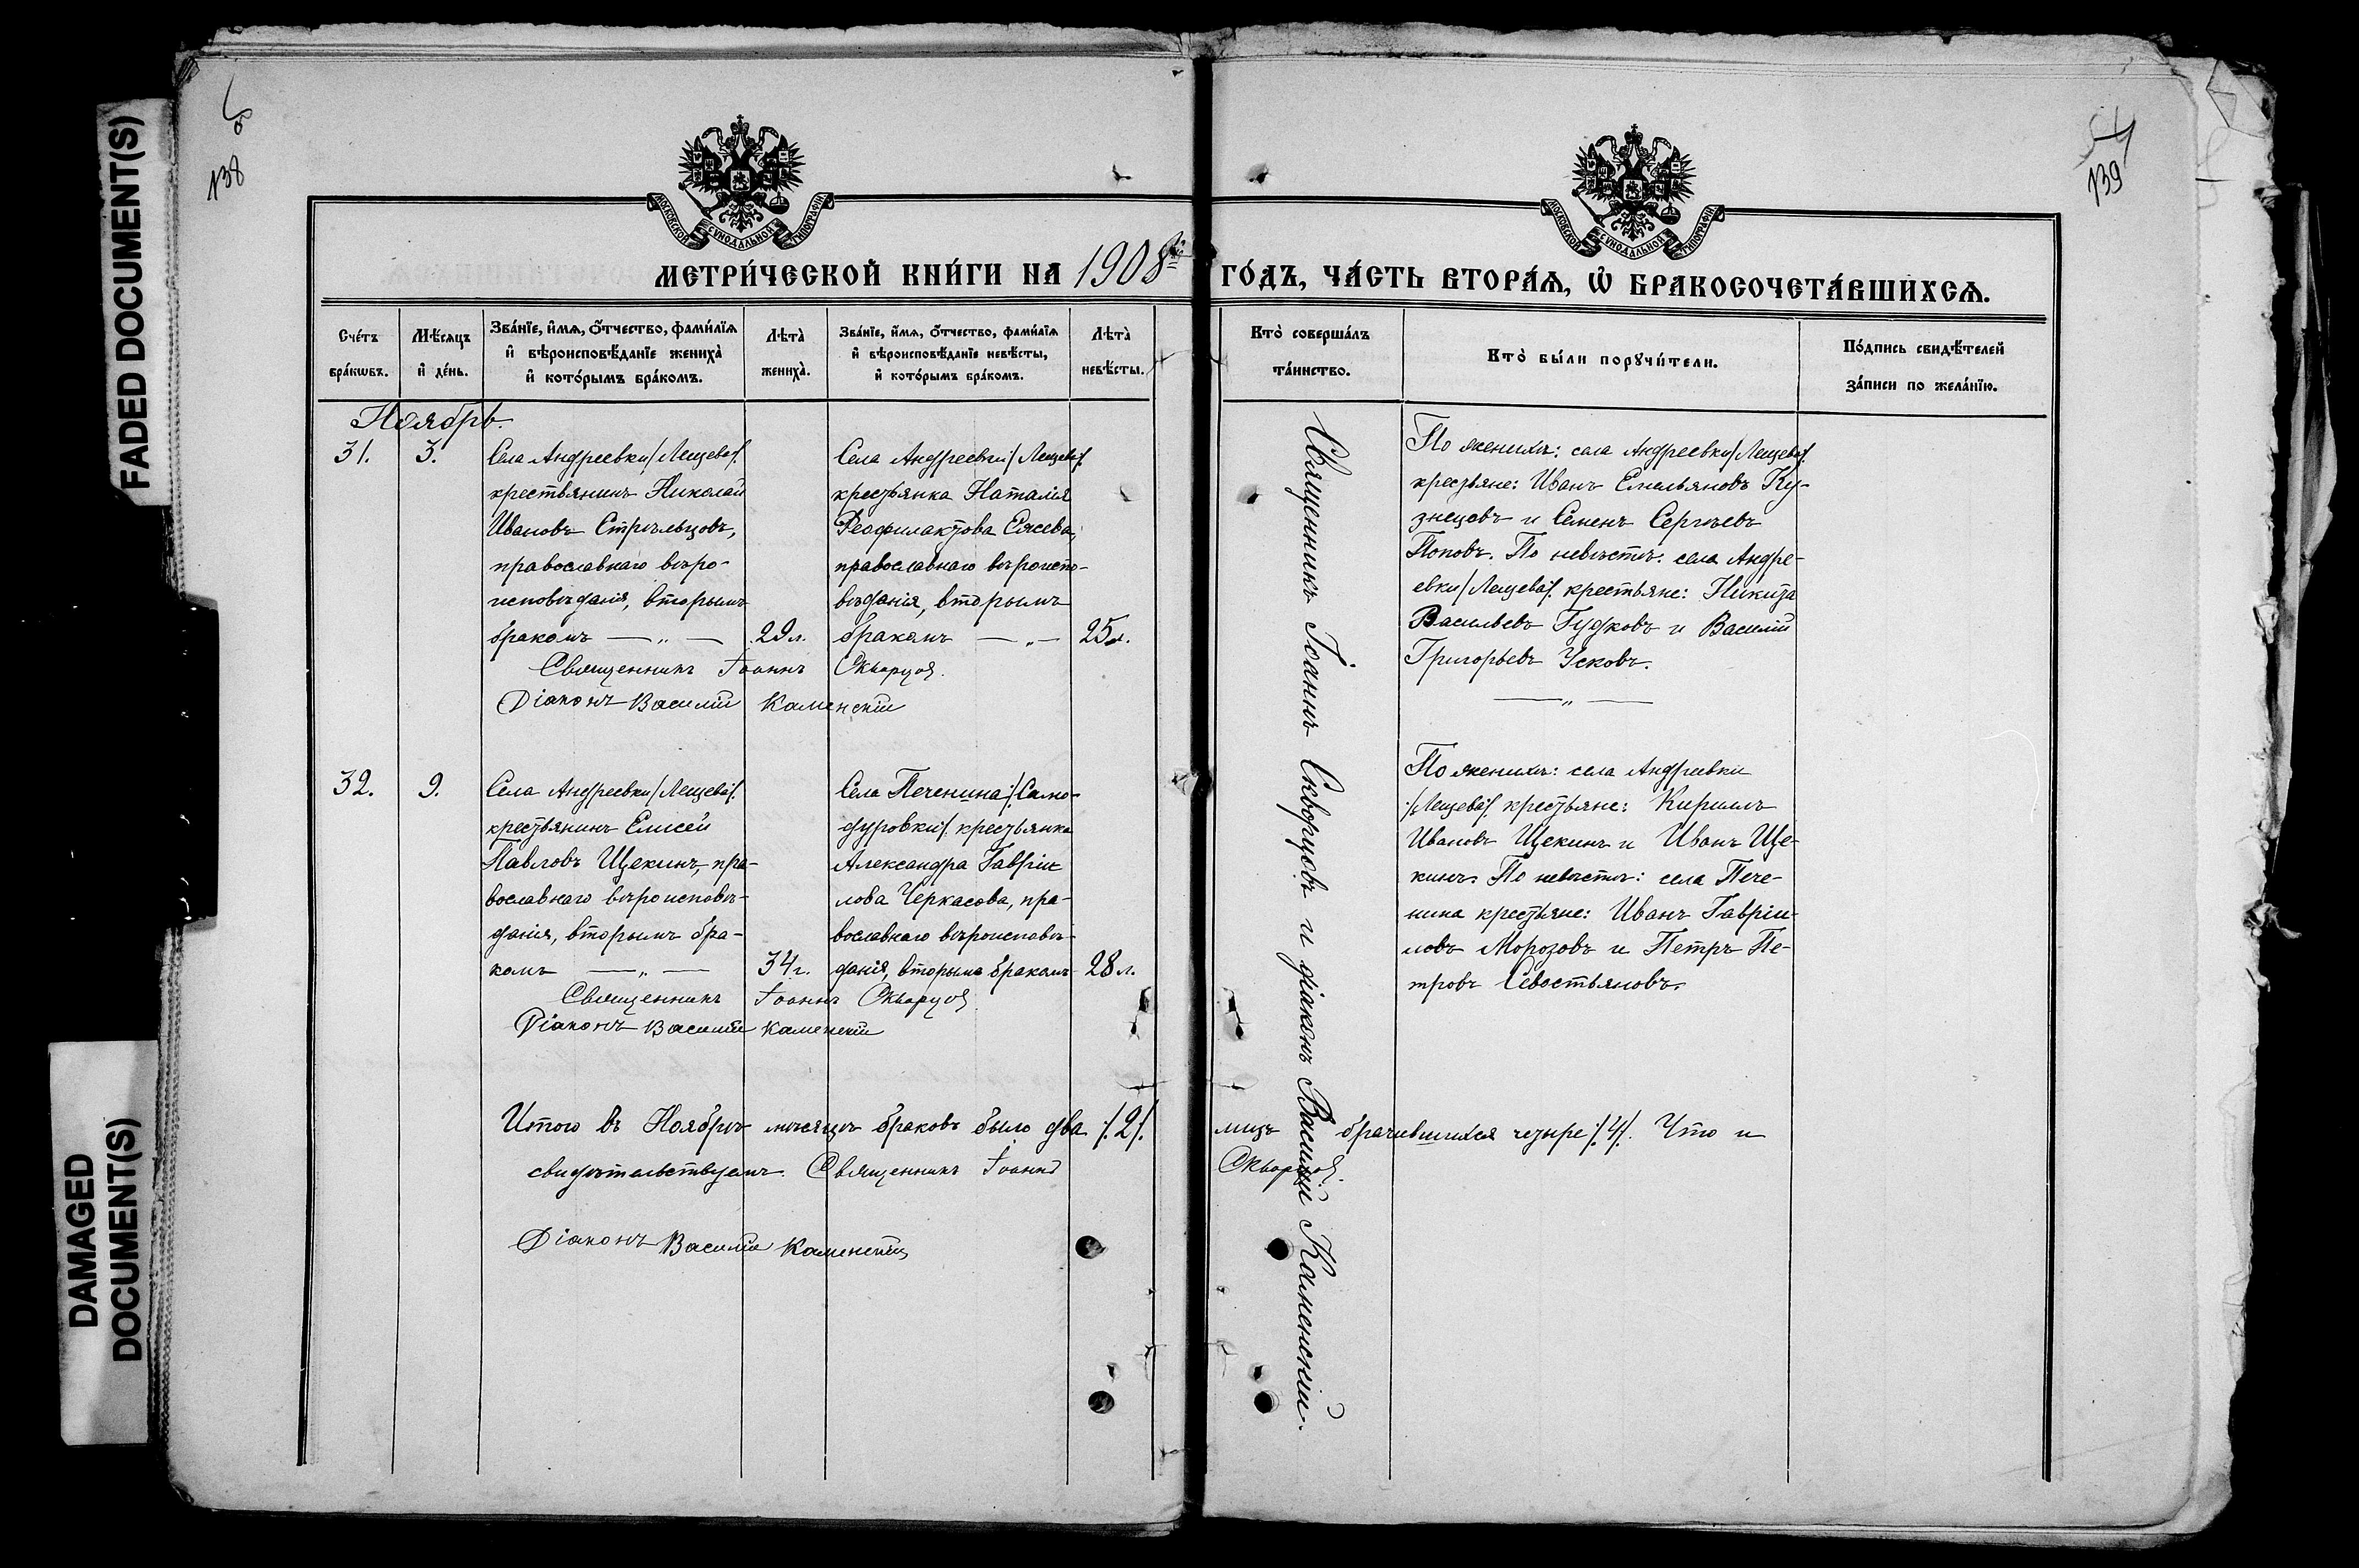 FADED DOCUMENT(S)
DAMAGED
DOCUMENT(S)
138
139
МОСКОВСКОЙ СѴНОДАЛЬНОЙ ТИПОГРАФІИ
МОСКОВСКОЙ СѴНОДАЛЬНОЙ ТИПОГРАФІИ
МЕТРИ́ЧЕСКОЙ КНИ́ГИ НА 1908
ГО́ДЪ, ЧА́СТЬ ВТОРА́Ѧ, Ѡ҆ БРАКОСОЧЕТА́ВШИХСѦ.
Сче́тъ
бра́кωвъ.
Мѣ́сяцъ
и҆ де́нь.
Зва́нїе, и҆́мѧ, ѻ҆́тчество, фами́лїѧ
и҆ вѣроисповѣ́данїе жениха̀
и҆ кото́рымъ бра́комъ.
Лѣта̀
жениха̀.
Зва́нїе, и҆́мѧ, ѻ҆́тчество, фами́лїѧ
и҆ вѣроисповѣ́данїе невѣ́сты,
и҆ кото́рымъ бра́комъ.
Лѣта̀
невѣ́сты.
Кто̀ соверша́лъ
та́инство.
Кто̀ бы́ли порꙋчи́тели.
По́дпись свидѣ́телей
за́писи по жела́нїю.
Ноябрь.
31.
3.
Села Андреевки /Лещева/.
крестьянинъ Николай
Ивановъ Стрѣльцовъ,
православнаго вѣро-
исповѣданія, вторымъ
бракомъ — „ —
29 л.
Села Андреевки /Лещева/.
крестьянка Наталія
Феофилактова Елсева,
православнаго вѣроиспо-
вѣданія, вторымъ
бракомъ — „ —
25 л.
Священникъ Іоаннъ Скворцов.
Діаконъ Василій Каменскій
По женихѣ: села Андреевки /Лещева/.
крестьяне: Иванъ Емельяновъ Ку-
знецовъ и Семенъ Сергѣевъ
Поповъ. По невѣстѣ: села Андре-
евки /Лещева/. крестьяне: Никита
Васильевъ Гудковъ и Василій
Григорьевъ Усковъ.
— „ —
32.
9.
Села Андреевки /Лещева/.
крестьянинъ Елисей
Павловъ Щекинъ, пра-
вославнаго вѣроисповѣ-
данія, вторымъ бра-
комъ — „ —
34 г.
Села Печенина /. Само-
дуровки/. крестьянка
Александра Гавріи
лова Черкасова, пра-
вославнаго вѣроисповѣ-
данія, вторымъ бракомъ
28 л.
Священникъ Іоаннъ Скворцов
Діаконъ Василій Каменскій
По женихѣ: села Андреевки
/.Лещева/. крестьяне: Кириллъ
Ивановъ Щекинъ и Иванъ Ще-
кинъ. По невѣстѣ: села Пече-
нина крестьяне: Иванъ Гавріи-
ловъ Морозовъ и Петръ Пе-
тровъ Севостьяновъ.
Священникъ Іоаннъ Скворцовъ и діаконъ Василій Каменскій.
Итого въ Ноябрѣ мѣсяцѣ браковъ было два /.2/. лицъ брачившихся четыре /.4/. Что и
свидѣтельствуемъ. Священникъ Іоаннъ Скворцов.
Діаконъ Василій Каменскій